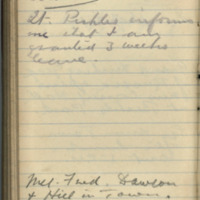 Lt. Pickles informs
me that I am
granted 3 weeks
leave.
Met. Fred. Dawson
& Hill in Town.